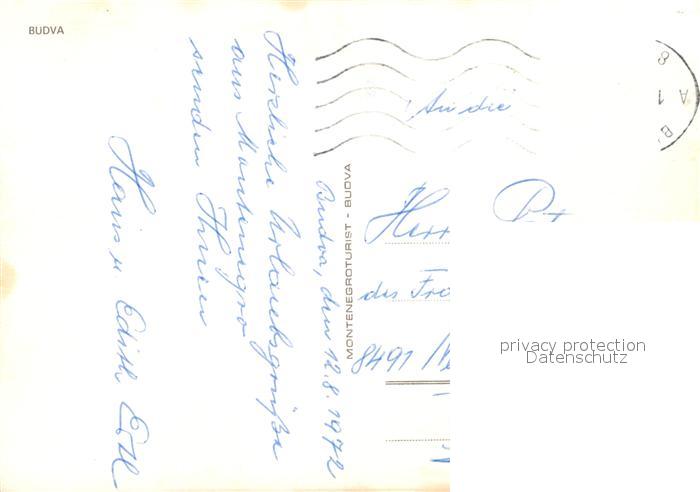 BUDVA
Budva, den 12.8.1972
Herzliche Urlaubsgrüße
aus Montenegro
senden Ihnen
Hans u. Edith
MONTENEGROTURIST - BUDVA
A 1
8
An die
Herr
des
8491
privacy protection
Datenschutz